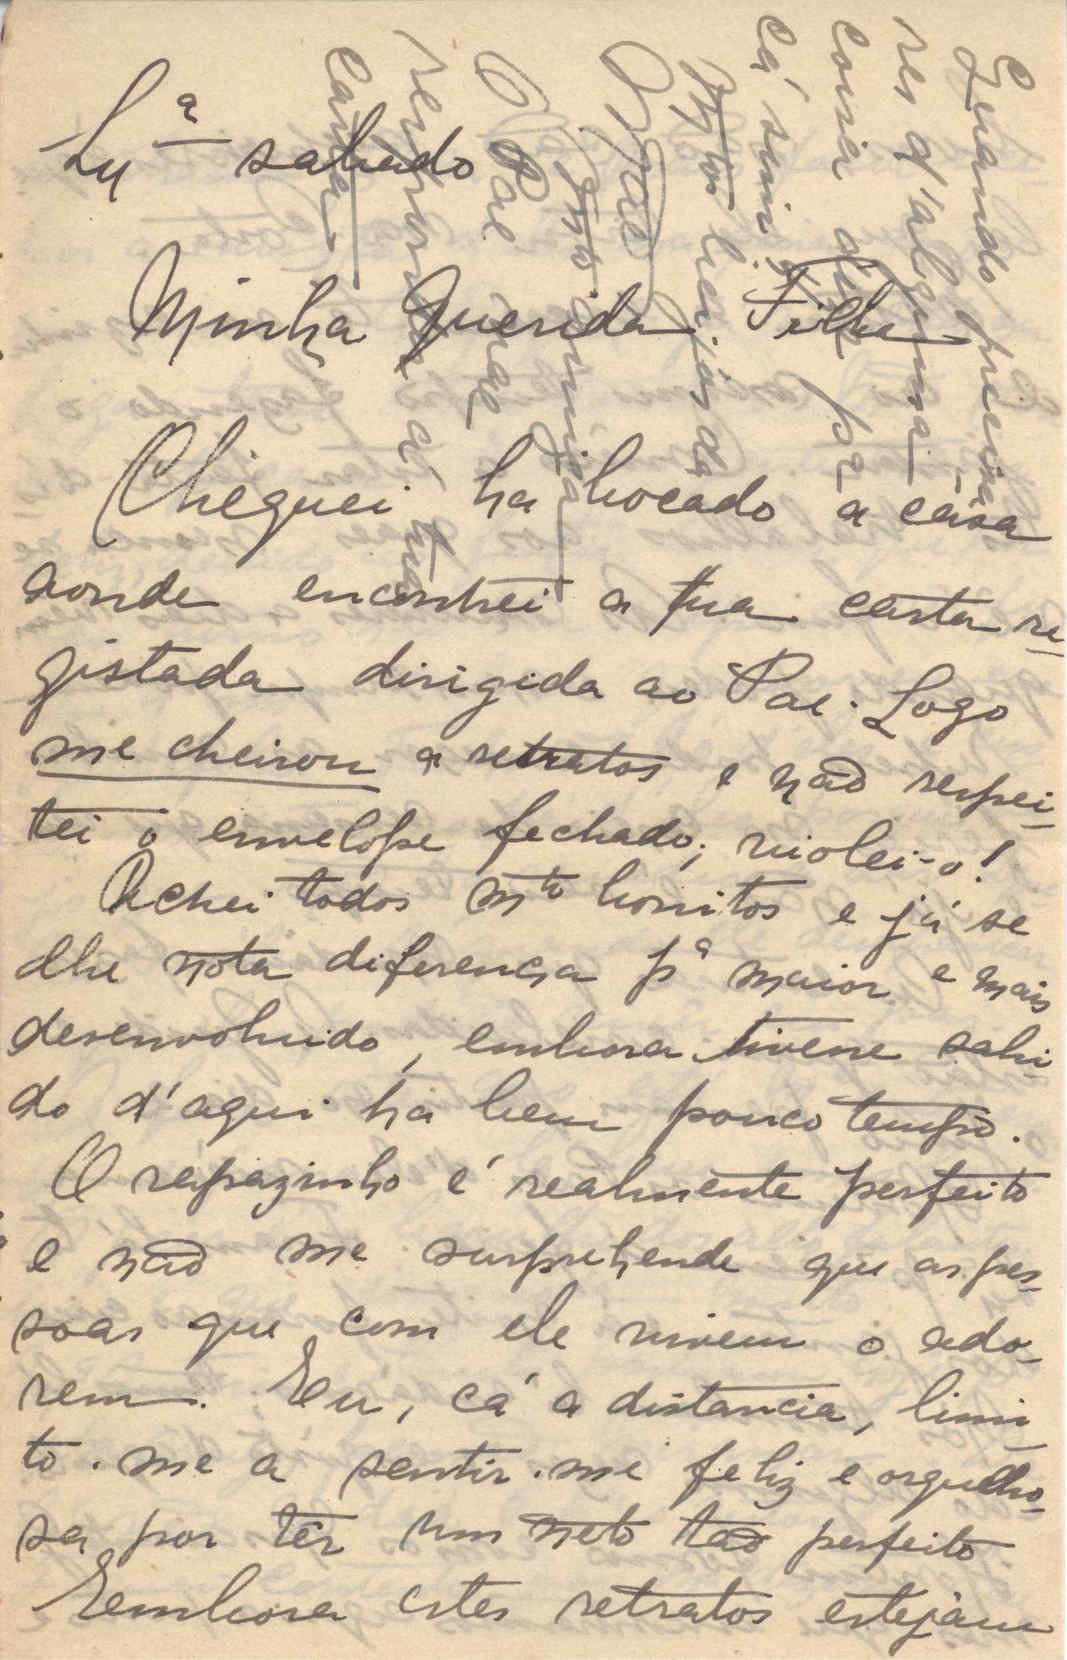 Lxª sabado
Minha Querida Filha
Cheguei ha bocado a casa
aonde encontrei a tua carta re-
gistada dirigida ao Pae. Logo
me cheirou a retratos e não respei-
tei o envelope fechado; violei-o!
Achei todos mto bonitos e já se
lhe nota diferença pª maior e mais
desenvolvido, embora tivesse sahi-
do d'aqui ha bem pouco tempo.
O rapazinho é realmente perfeito
e não me surprehende que as pes-
soas que com ele vivem o ado-
rem. Eu, cá a distancia, limi-
to-me a sentir-me feliz e orgulho-
sa por têr um neto tão perfeito
Eembora estes retratos estejam
Quando precisa-
res d'alguma
coisa dize pa
cá sim?
Mtos beijos da
Mãe
mto amiga
O Pae que
responde á tua
carta